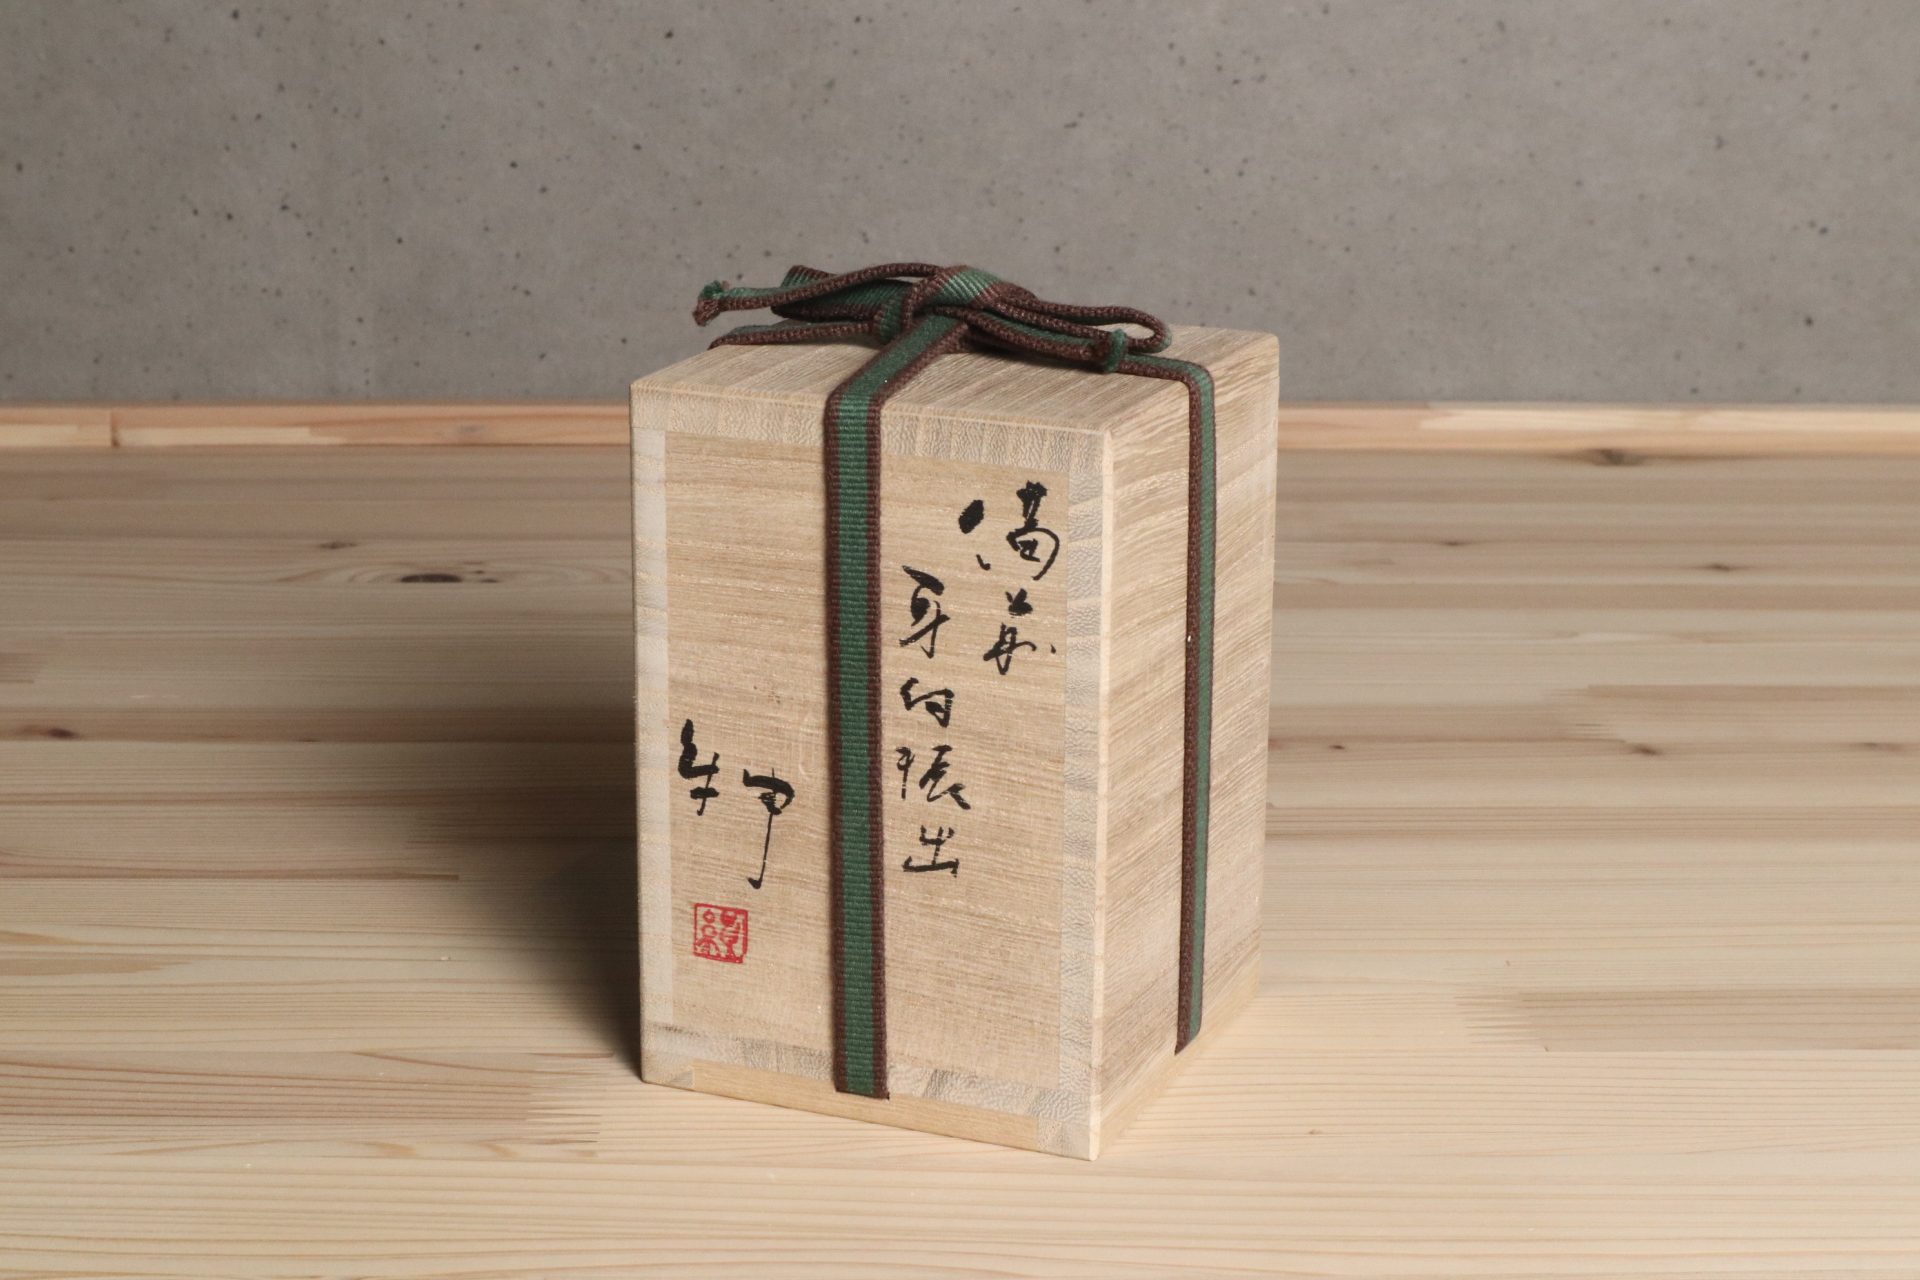 備前
耳付振出